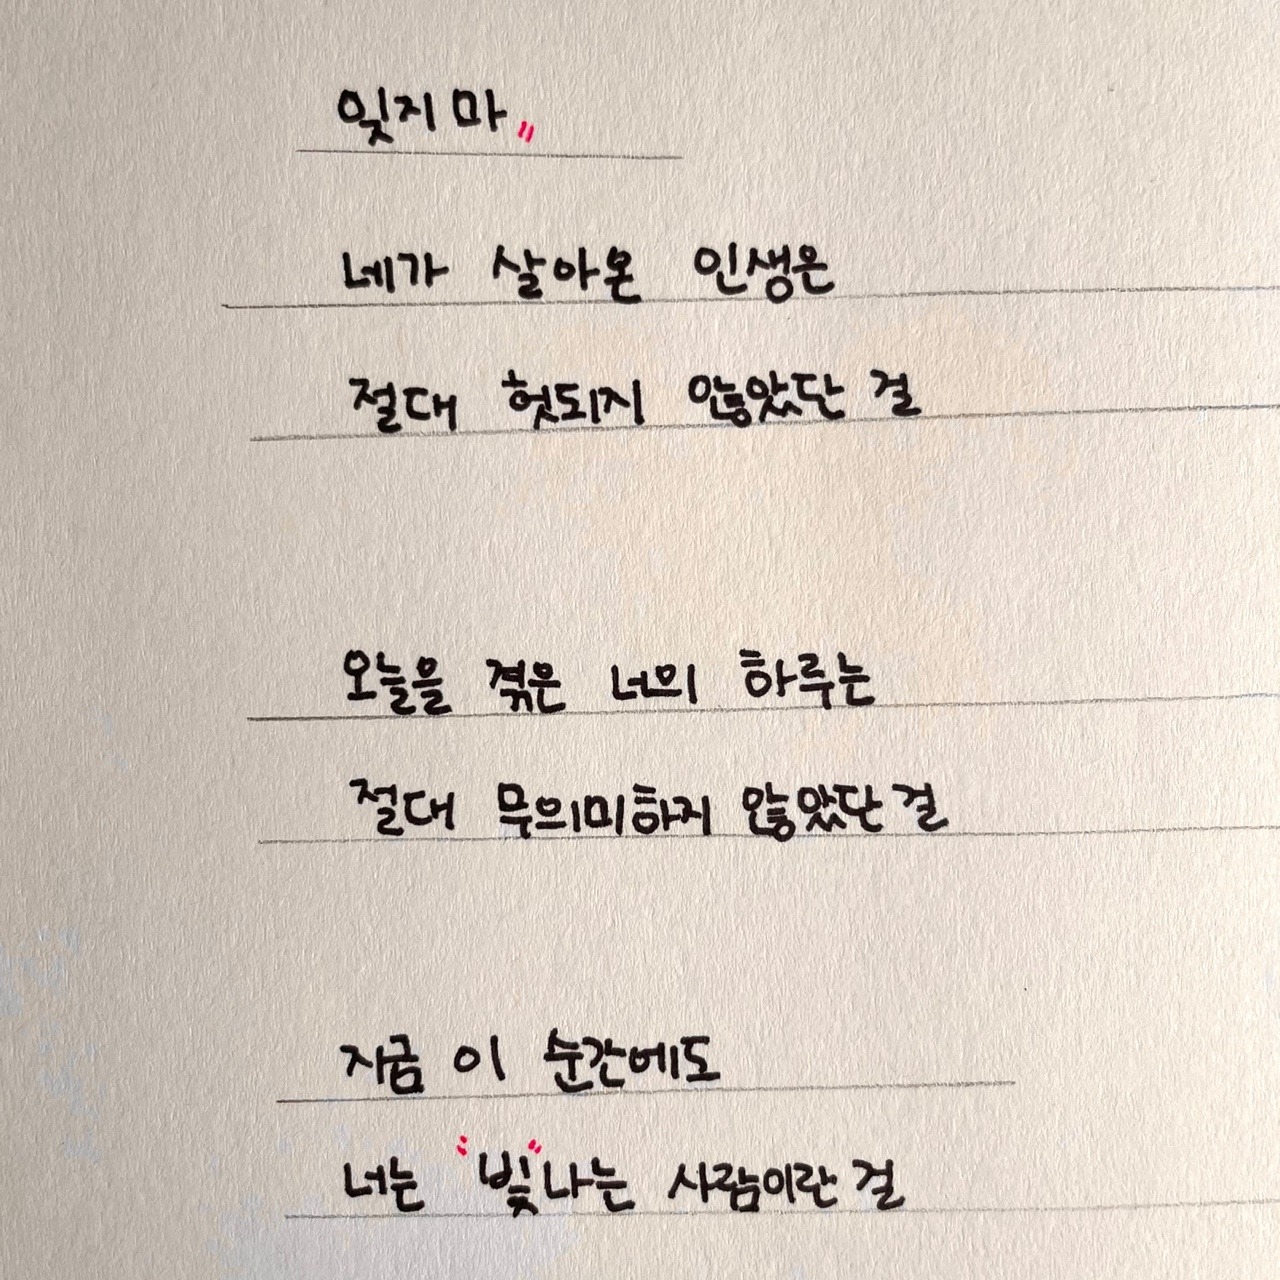 잊지 마"
네가 살아온 인생은
절대 헛되지 않았단 걸
오늘을 겪은 너의 하루는
절대 무의미하지 않았단 걸
지금 이 순간에도
너는 "빛"나는 사람이란 걸